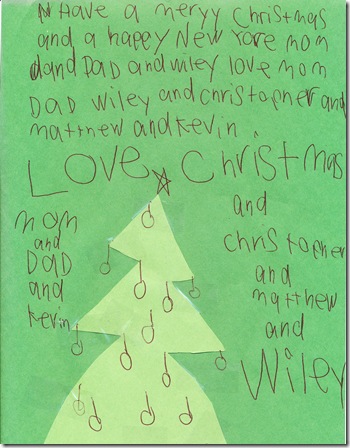 Have a meryy Christmas
and a happy New Yore mom
and DaD and wiley love mom
DaD wiley and christopher and
matthew and Kevin.
Love Christmas
mom
and
DaD
and
Kevin
and
christopher
and
matthew
and
Wiley